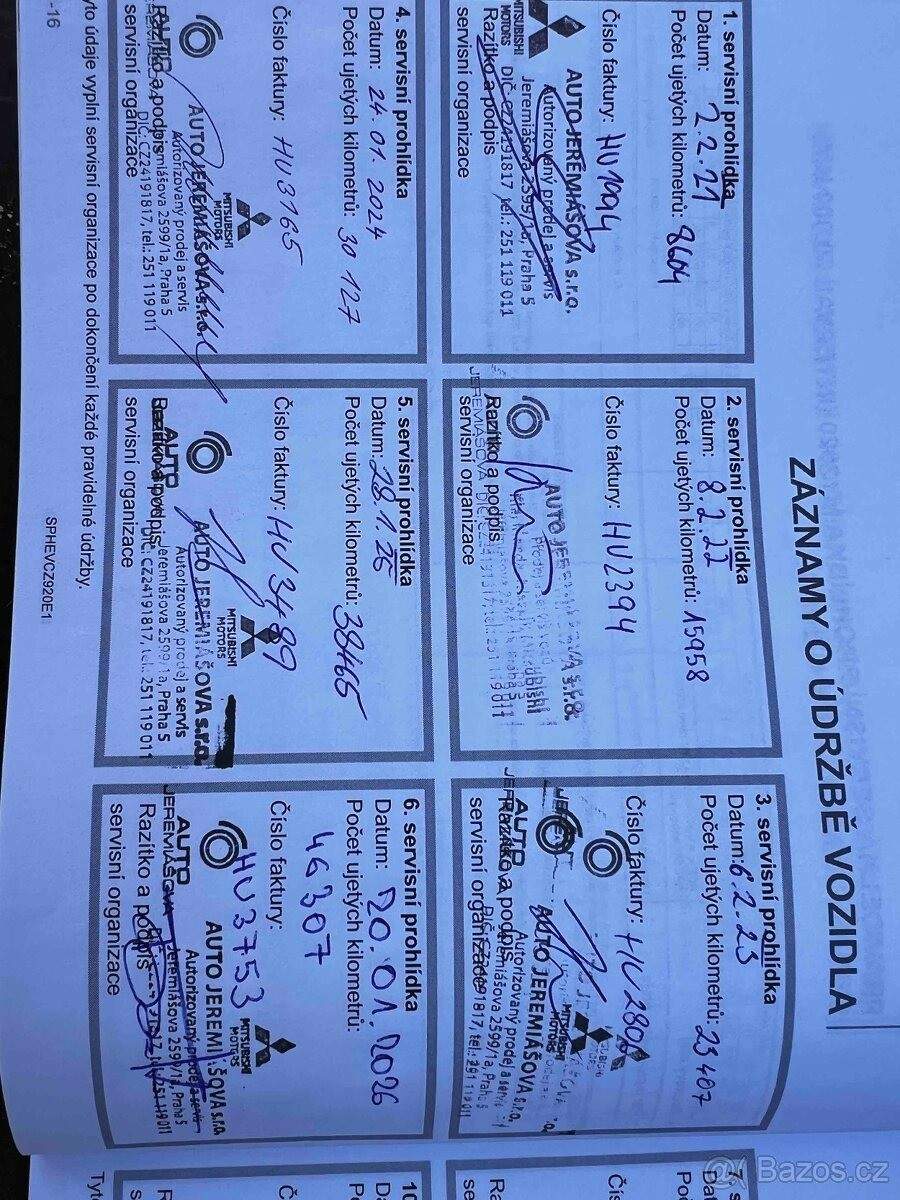 ZÁZNAMY O ÚDRŽBĚ VOZIDLA
1. servisní prohlídka
Datum: 2.2.21
Počet ujetých kilometrů: 8604
Číslo faktury: HU1994
MITSUBISHI
MOTORS
AUTO JEREMIÁŠOVA s.r.o.
Autorizovaný prodej a servis
Jeremiášova 2599/1a, Praha 5
DIČ: CZ24191817, tel.: 251 119 011
Razítko a podpis
servisní organizace
2. servisní prohlídka
Datum: 8.2.22
Počet ujetých kilometrů: 15958
Číslo faktury: HU2394
Razítko a podpis
servisní organizace
3. servisní prohlídka
Datum: 6.2.23
Počet ujetých kilometrů: 23407
Číslo faktury:
AUTO JEREMIÁŠOVA s.r.o.
Autorizovaný prodej a servis
Jeremiášova 2599/1a, Praha 5
Razítko a podpis
servisní organizace
4. servisní prohlídka
Datum: 24.01.2024
Počet ujetých kilometrů: 30 127
Číslo faktury: HU3165
MITSUBISHI
MOTORS
AUTO
AUTO JEREMIÁŠOVA s.r.o.
Autorizovaný prodej a servis
Jeremiášova 2599/1a, Praha 5
DIČ: CZ24191817, tel.: 251 119 011
Razítko a podpis
servisní organizace
5. servisní prohlídka
Datum: 28.1.25
Počet ujetých kilometrů: 38465
Číslo faktury: HU3489
MITSUBISHI
MOTORS
AUTO
AUTO JEREMIÁŠOVA s.r.o.
Autorizovaný prodej a servis
Jeremiášova 2599/1a, Praha 5
DIČ: CZ24191817, tel.: 251 119 011
Razítko a podpis
servisní organizace
6. servisní prohlídka
Datum: 20.01.2026
Počet ujetých kilometrů:
46307
Číslo faktury:
HU3753
MITSUBISHI
MOTORS
AUTO
JEREMIÁŠOVA
AUTO JEREMIÁŠOVA s.r.o.
Autorizovaný prodej a servis
Jeremiášova 2599/1a, Praha 5
Razítko a podpis
servisní organizace
yto údaje vyplní servisní organizace po dokončení každé pravidelné údržby.
-16
SPHEVCZ920E1
7. s
Dat
Poč
Čís
Raz
ser
10
Da
Po
Č
R
se
Tyto
Bazos.cz